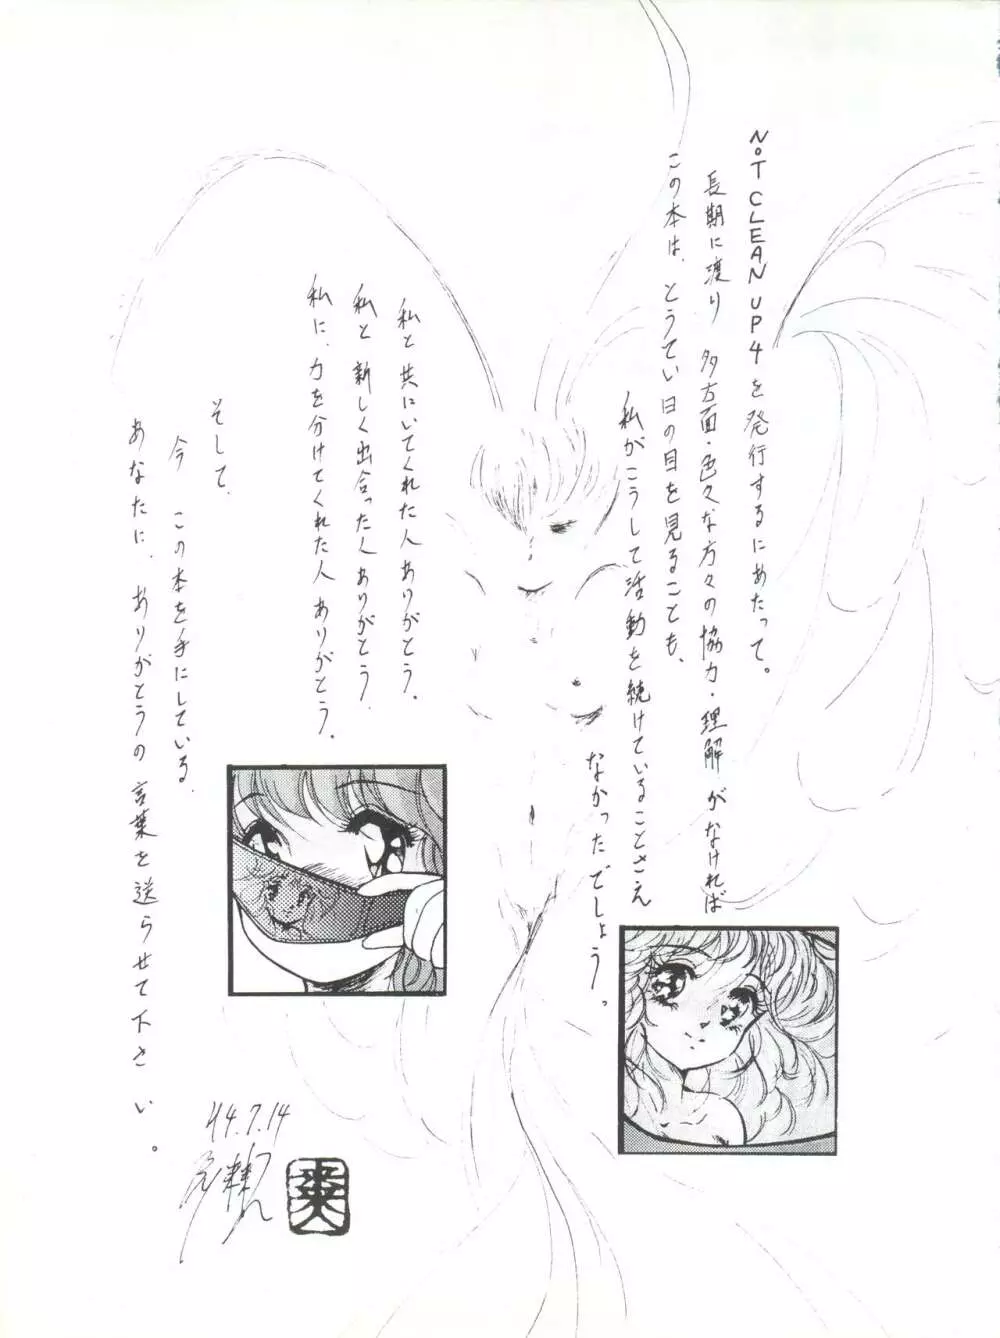 NOT CLEAN UP 4 を発行するにあたって。
長期に渡り 多方面・色々な方々の協力・理解がなければ
この本は、とうてい日の目を見ることも、
私がこうして活動を続けていることさえ
なかったでしょう。
私と共にいてくれた人ありがとう.
私と新しく出合った人ありがとう.
私に、力を分けてくれた人ありがとう.
そして.
今 この本を手にしている.
あなたに、ありがとうの言葉を送らせて下さい。
H4.7.14